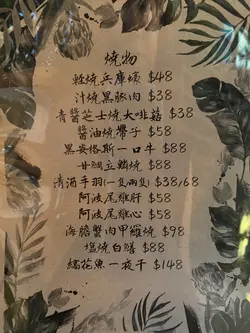 燒物
輕燒兵庫蠔 $48
汁燒黑豚肉 $38
青醬芝士燒大啡菇 $38
醬油燒帶子 $58
黑安格斯一口牛 $88
甘鯛立鱗燒 $88
清酒手羽(一隻/兩隻) $38/68
阿波尾雞肝 $58
阿波尾雞心 $58
海膽蟹肉甲羅燒 $98
塩燒白鱔 $88
縞花魚一夜干 $148